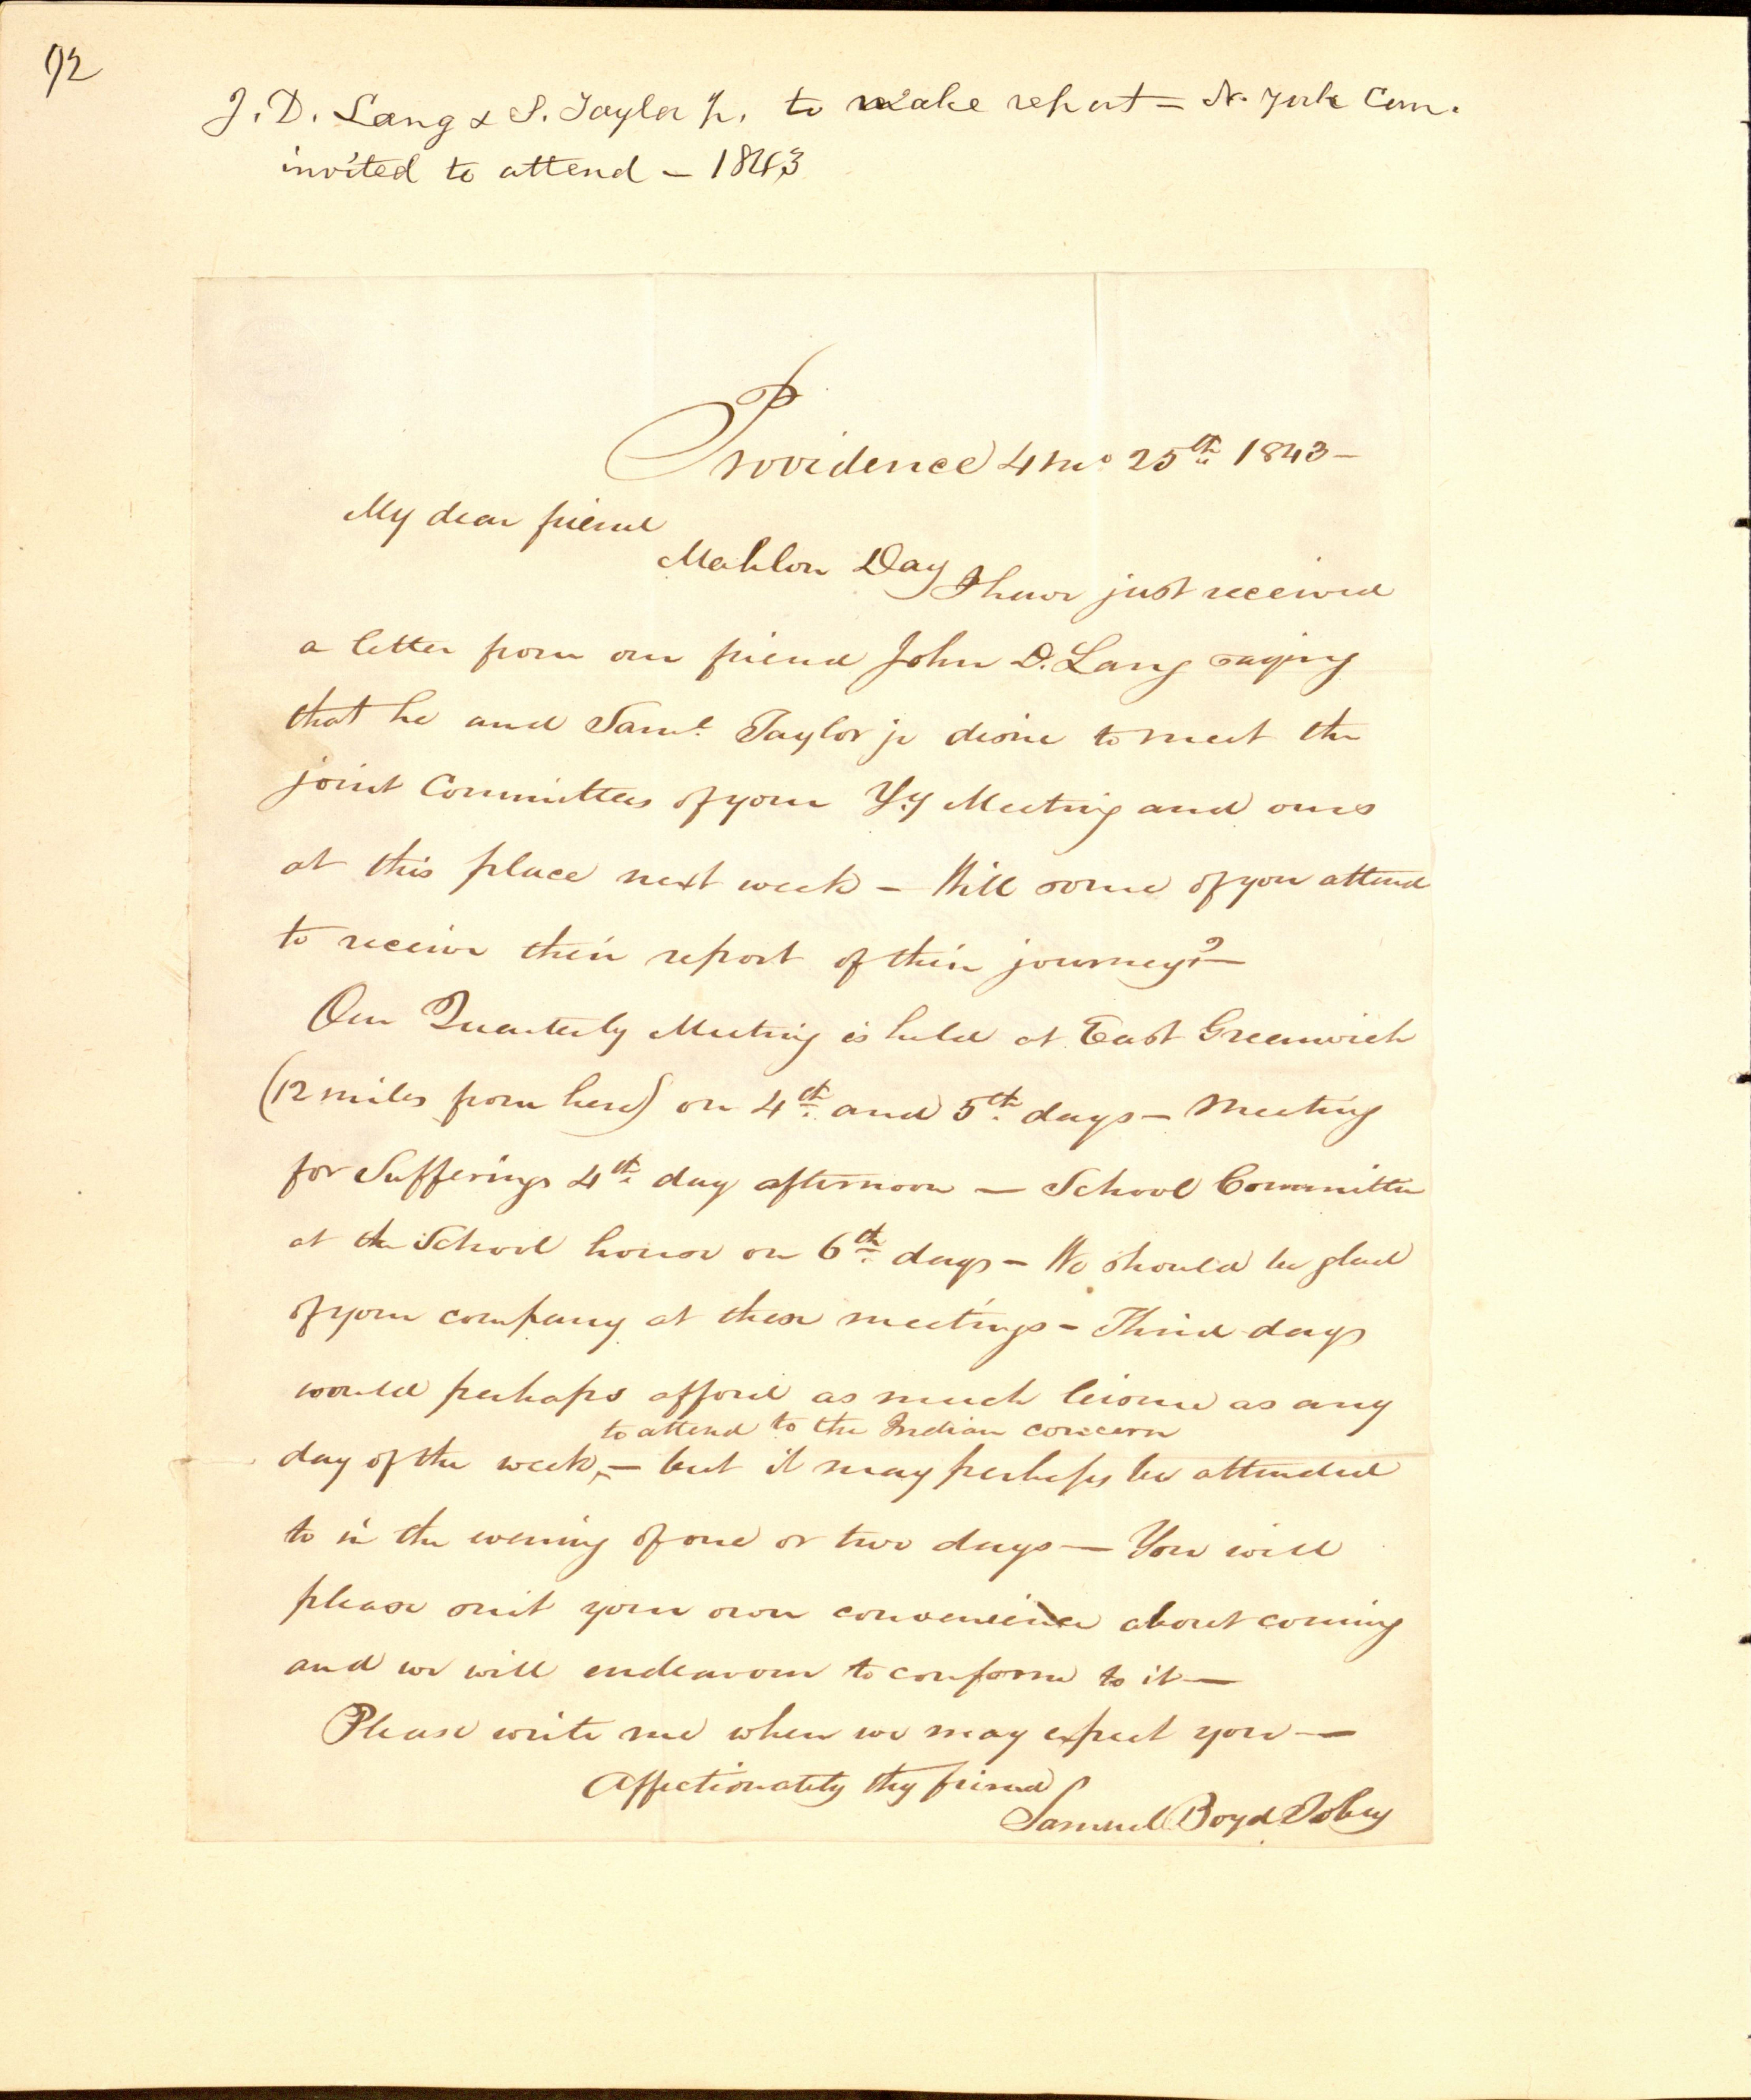 92
J. D. Lang & S. Taylor Jr. to make report – N. York Com.
invited to attend – 1843
Providence 4 mo 25th 1843 –
My dear friend
Mahlon Day I have just received
a letter from our friend John D. Lang saying
that he and Saml. Taylor jr desire to meet the
joint Committees of your Yy Meeting and ours
at this place next week – Will some of you attend
to receive their report of their journey? –
Our Quarterly Meeting is held at East Greenwich
(12 miles from here) on 4th and 5th days – Meeting
for Sufferings 4th day afternoon – School Committee
at the School house on 6th days – We should be glad
of your company at these meetings – Third days
would perhaps afford as much leisure as any
to attend to the Indian concern
day of the week, – but it may perhaps be attended
to in the evening of one or two days – You will
please suit your own convenience about coming
and we will endeavour to conform to it –
Please write me when we may expect you –
Affectionately thy friend
Samuel Boyd Tobey